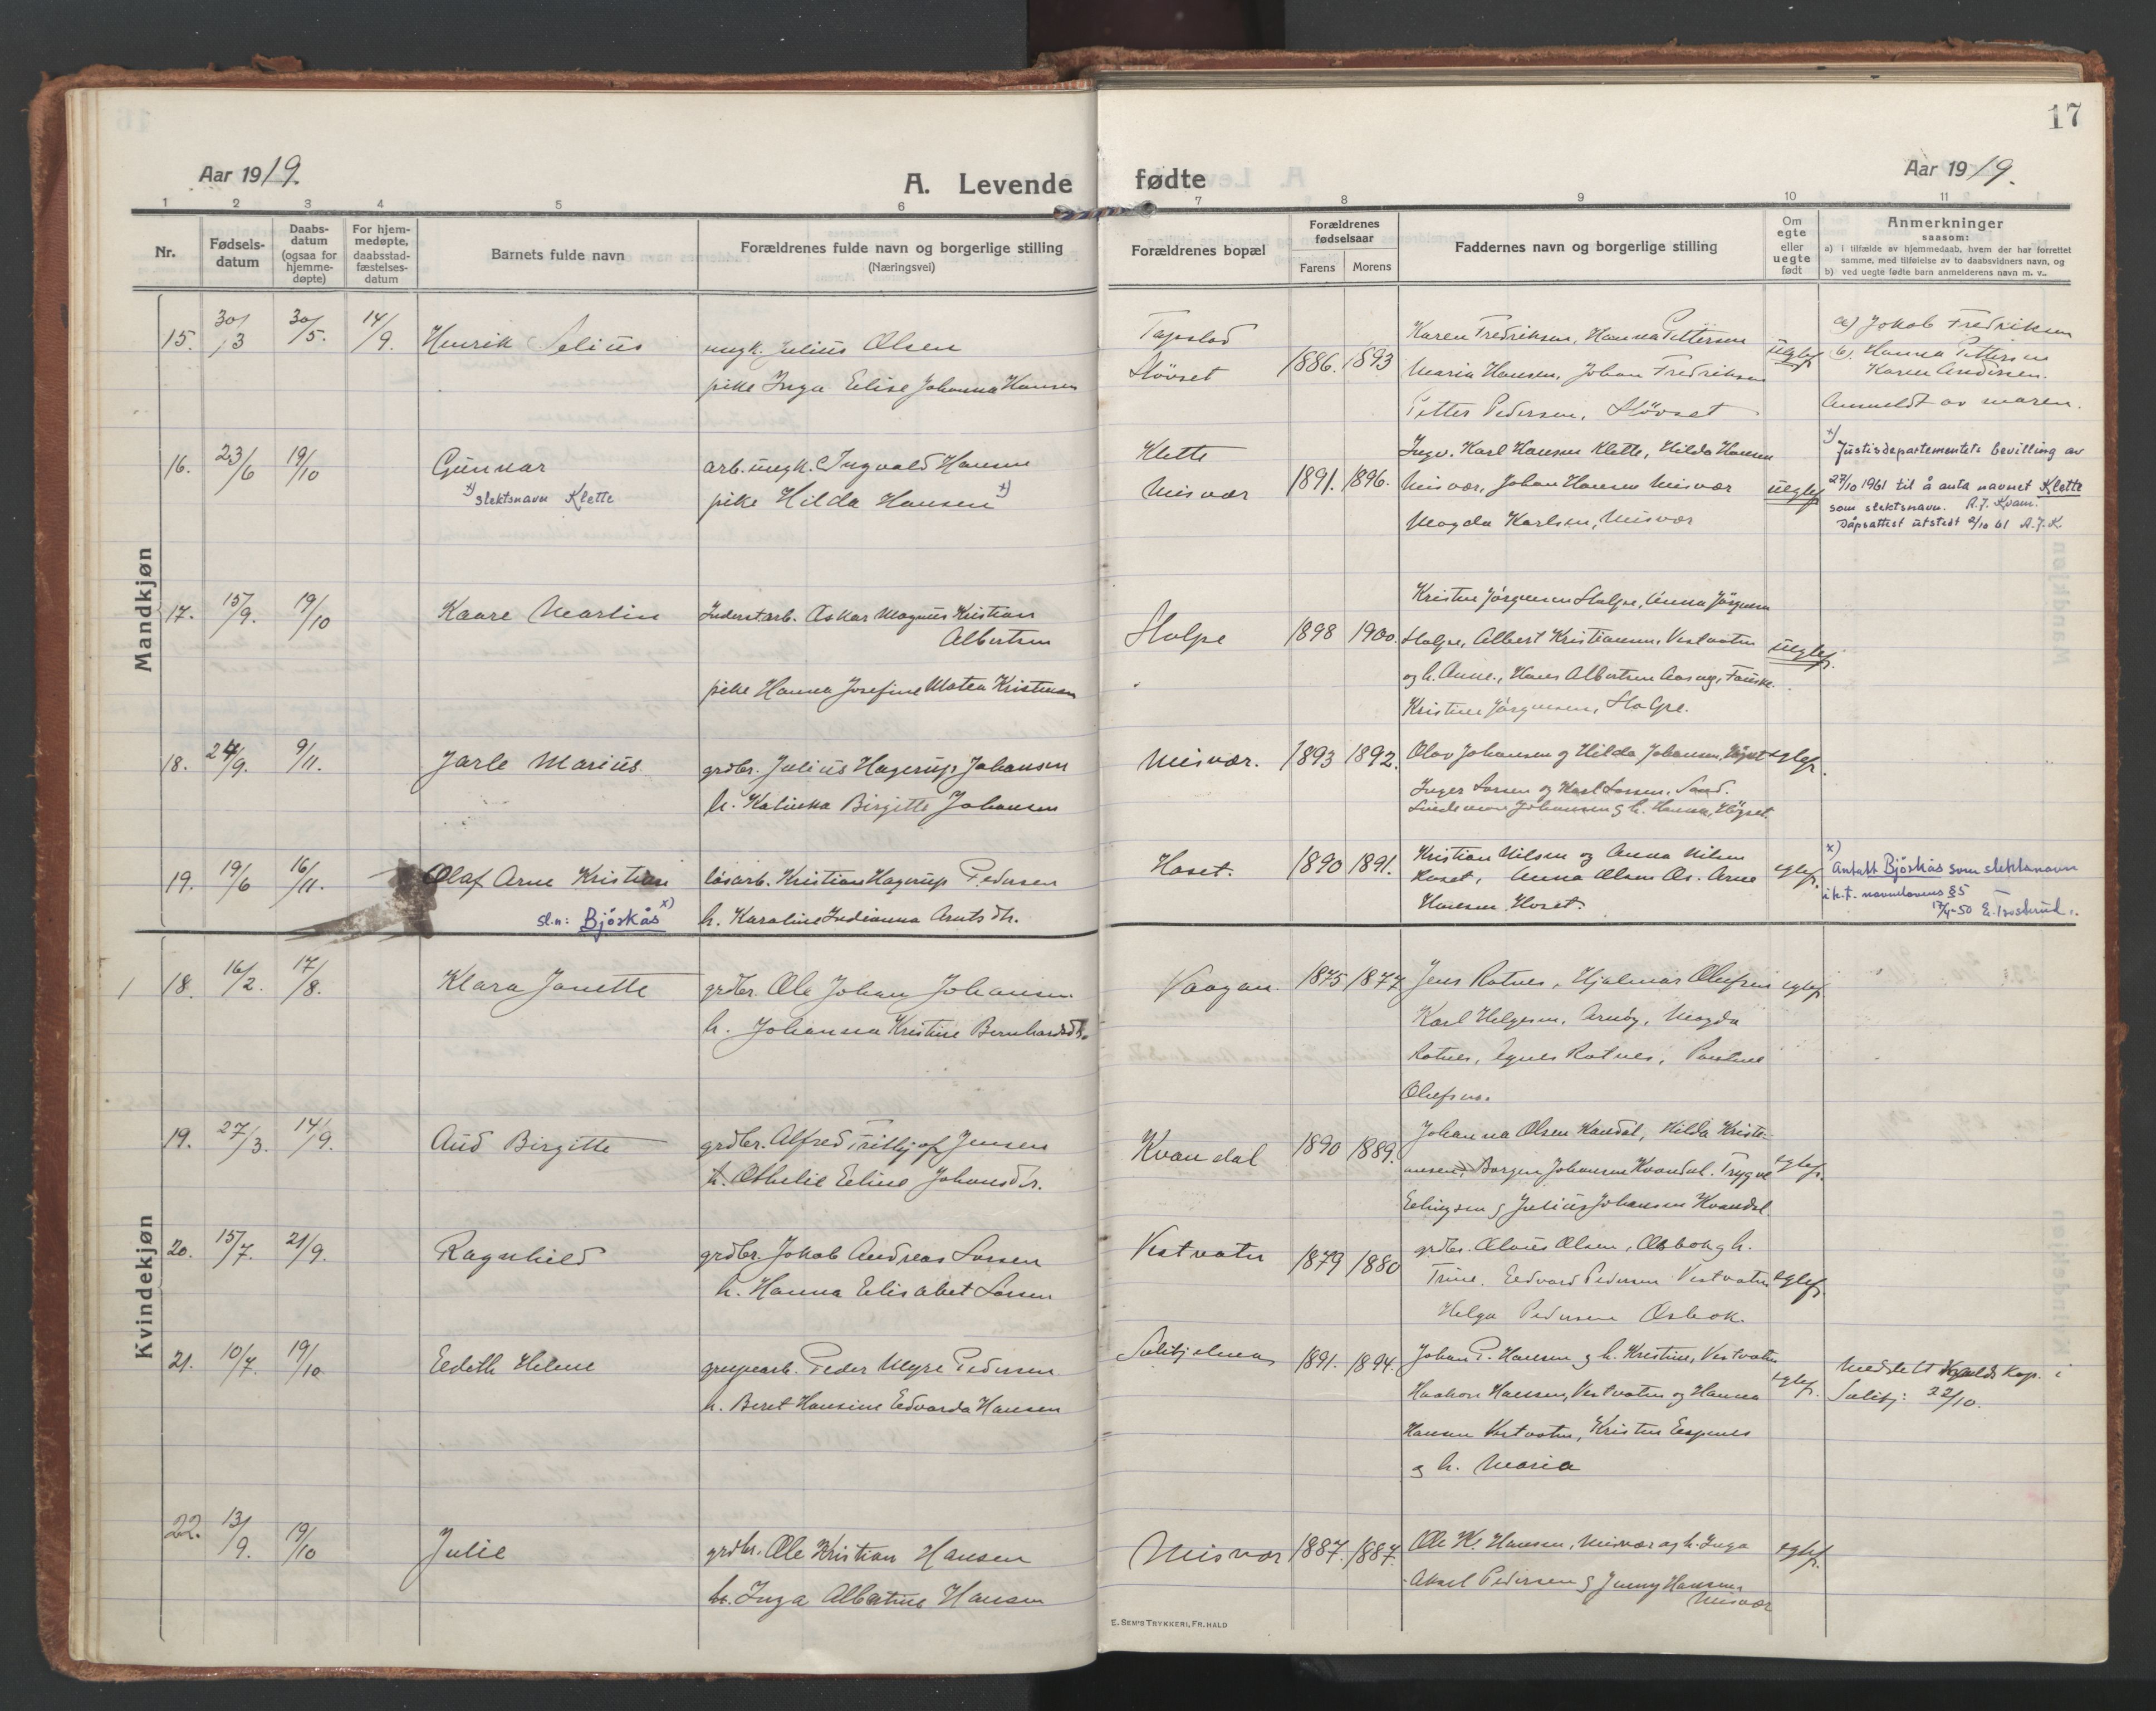 17
Aar 1919.
A. Levende fødte
Aar 1919.
1 2 3 4 5 6 7 8 9 10 11
Nr.
Fødsels-
datum
Daabs-
datum
(ogsaa for
hjemme-
døpte)
For hjem-
medøpte,
daabsstad-
fæstelses-
datum
Barnets fulde navn
Forældrenes fulde navn og borgerlige stilling
(Næringsvei)
Forældrenes bopæl
Forældrenes
fødselsaar
Farens Morens
Faddernes navn og borgerlige stilling
Om
egte
eller
uegte
født
Anmerkninger
saasom:
a) i tilfælde av hjemmedaab, hvem der har forrettet
samme, med tilføielse av to daabsvidners navn, og
b) ved uegte fødte barn anmelderens navn m. v..
Mandkjøn
15. 30/3 30/5. 14/9. Henrik Selius
ungk. Julius Olsen
pike Inga Elise Johanna Hansen
Støvset
1886. 1893
Karen Fredriksen, Hanna Pettersen
Maria Hansen, Johan Fredriksen
Petter Pedersen, Støvset
uegtef.
a) Jakob Fredriksen
b) Hanna Pettersen
Karen Andersen.
Anmeldt av moren.
16. 23/6 19/10 Gunnar
x) slektsnavn Klette
arb. ungk. Ingvald Hansen
pike Hilda Hansen x)
Klette
Misvær
1891. 1896.
Ingv. Karl Hansen Klette, Hilda Hansen
Misvær, Johan Hansen Misvær
Magda Karlsen, Misvær
uegtef.
x) Justisdepartementets bevilling av
27/10 1961 til å anta navnet Klette
som slektsnavn. A.J. Kvam.
Dåpsattest utstedt 2/10 61 A.J.K
17. 15/9. 19/10 Kaare Martin
Oskar Magnus Kristian
Albertsen
pike Hanna Josefine Matea Kristensen
Stolpe
1898 1900.
Kristen Jörgensen Stolpe, Anna Jörgensen
Stolpe, Albert Kristiansen, Vestvatn
og h. Anne., Hans Albertsen Fauske.
Kristine Jörgensen, Stolpe.
uegtef.
18. 24/9. 9/11. Jarle Marius
grdbr. Julius Hagerup Johansen
h. Katinka Birgitte Johansen
Misvær.
1893 1892.
Olav Johansen og Hilda Johansen, Högset
Inger Larsen og Karl Larsen, Sand.
Johansen og h. Hanna, Högset.
egtef.
19. 19/6 16/11. Olaf Arne Kristian
sl.n: Bjöskås x)
løsarb. Kristian Hagerup Pedersen
h. Karoline Indianna Arntsdtr.
Hoset.
1890 1891.
Kristian Nilsen og Anna Nilsen
Hoset, Anna Olsen Arne
Hansen Hoset.
egtef.
x) Antatt Bjöskås som slektsnavn
i h.t. navnelovens §5
17/4-50
Kvindekjøn
1 18. 16/2. 17/8. Klara Janette
grdbr. Ole Johan Johansen
h. Johanna Kristine Bernhardsdtr.
Vaagan.
1875 1877
Jens Rotnes, Hjalmar Olufsen
Karl Helgesen, Arnøy, Magda
Rotnes, Agnes Rotnes, Pauline
Olufsen.
egtef.
19. 27/3. 14/9. Aud Birgitte
grdbr. Alfred Frithjof Jensen
h. Othelie Eline Johansdtr.
Kvandal
1890 1889.
Johanna Olsen Kvandal, Hilda Kristi-
ansen, Borgen Johansen Kvandal. Trygve
Ellingsen og Julius Johansen Kvandal.
egtef.
20. 15/7. 21/9. Ragnhild
grdbr. Jakob Andreas Larsen
h. Hanna Elisabet Larsen
Vestvatn
1879 1880
grdbr. Olaus Olsen, Osbak og h.
Trine. Edvard Pedersen Vestvatn
Helga Pedersen Osbak.
egtef.
21. 10/7. 19/10 Edith Helene
grubearb. Peder Myre Pedersen
h. Beret Hansine Edvarda Hansen
Sulitjelma
1891. 1894.
Johan P. Hansen og h. Kristine, Vestvatn
Haakon Hansen, Vestvatn og Hanna
Hansen Vestvatn, Kristen Espenes
og h. Maria
egtef.
Meddelt kap. i
Sulitj: 22/10.
22. 13/9. 19/10 Julie
grdbr. Ole Kristian Hansen
h. Inga Albertine Hansen
Misvær
1887. 1887.
Ole Kr. Hansen, Misvær og h. Inga
Aksel Pedersen og Jenny Hansen,
Misvær
egtef.
E. SEM'S TRYKKERI, FR. HALD